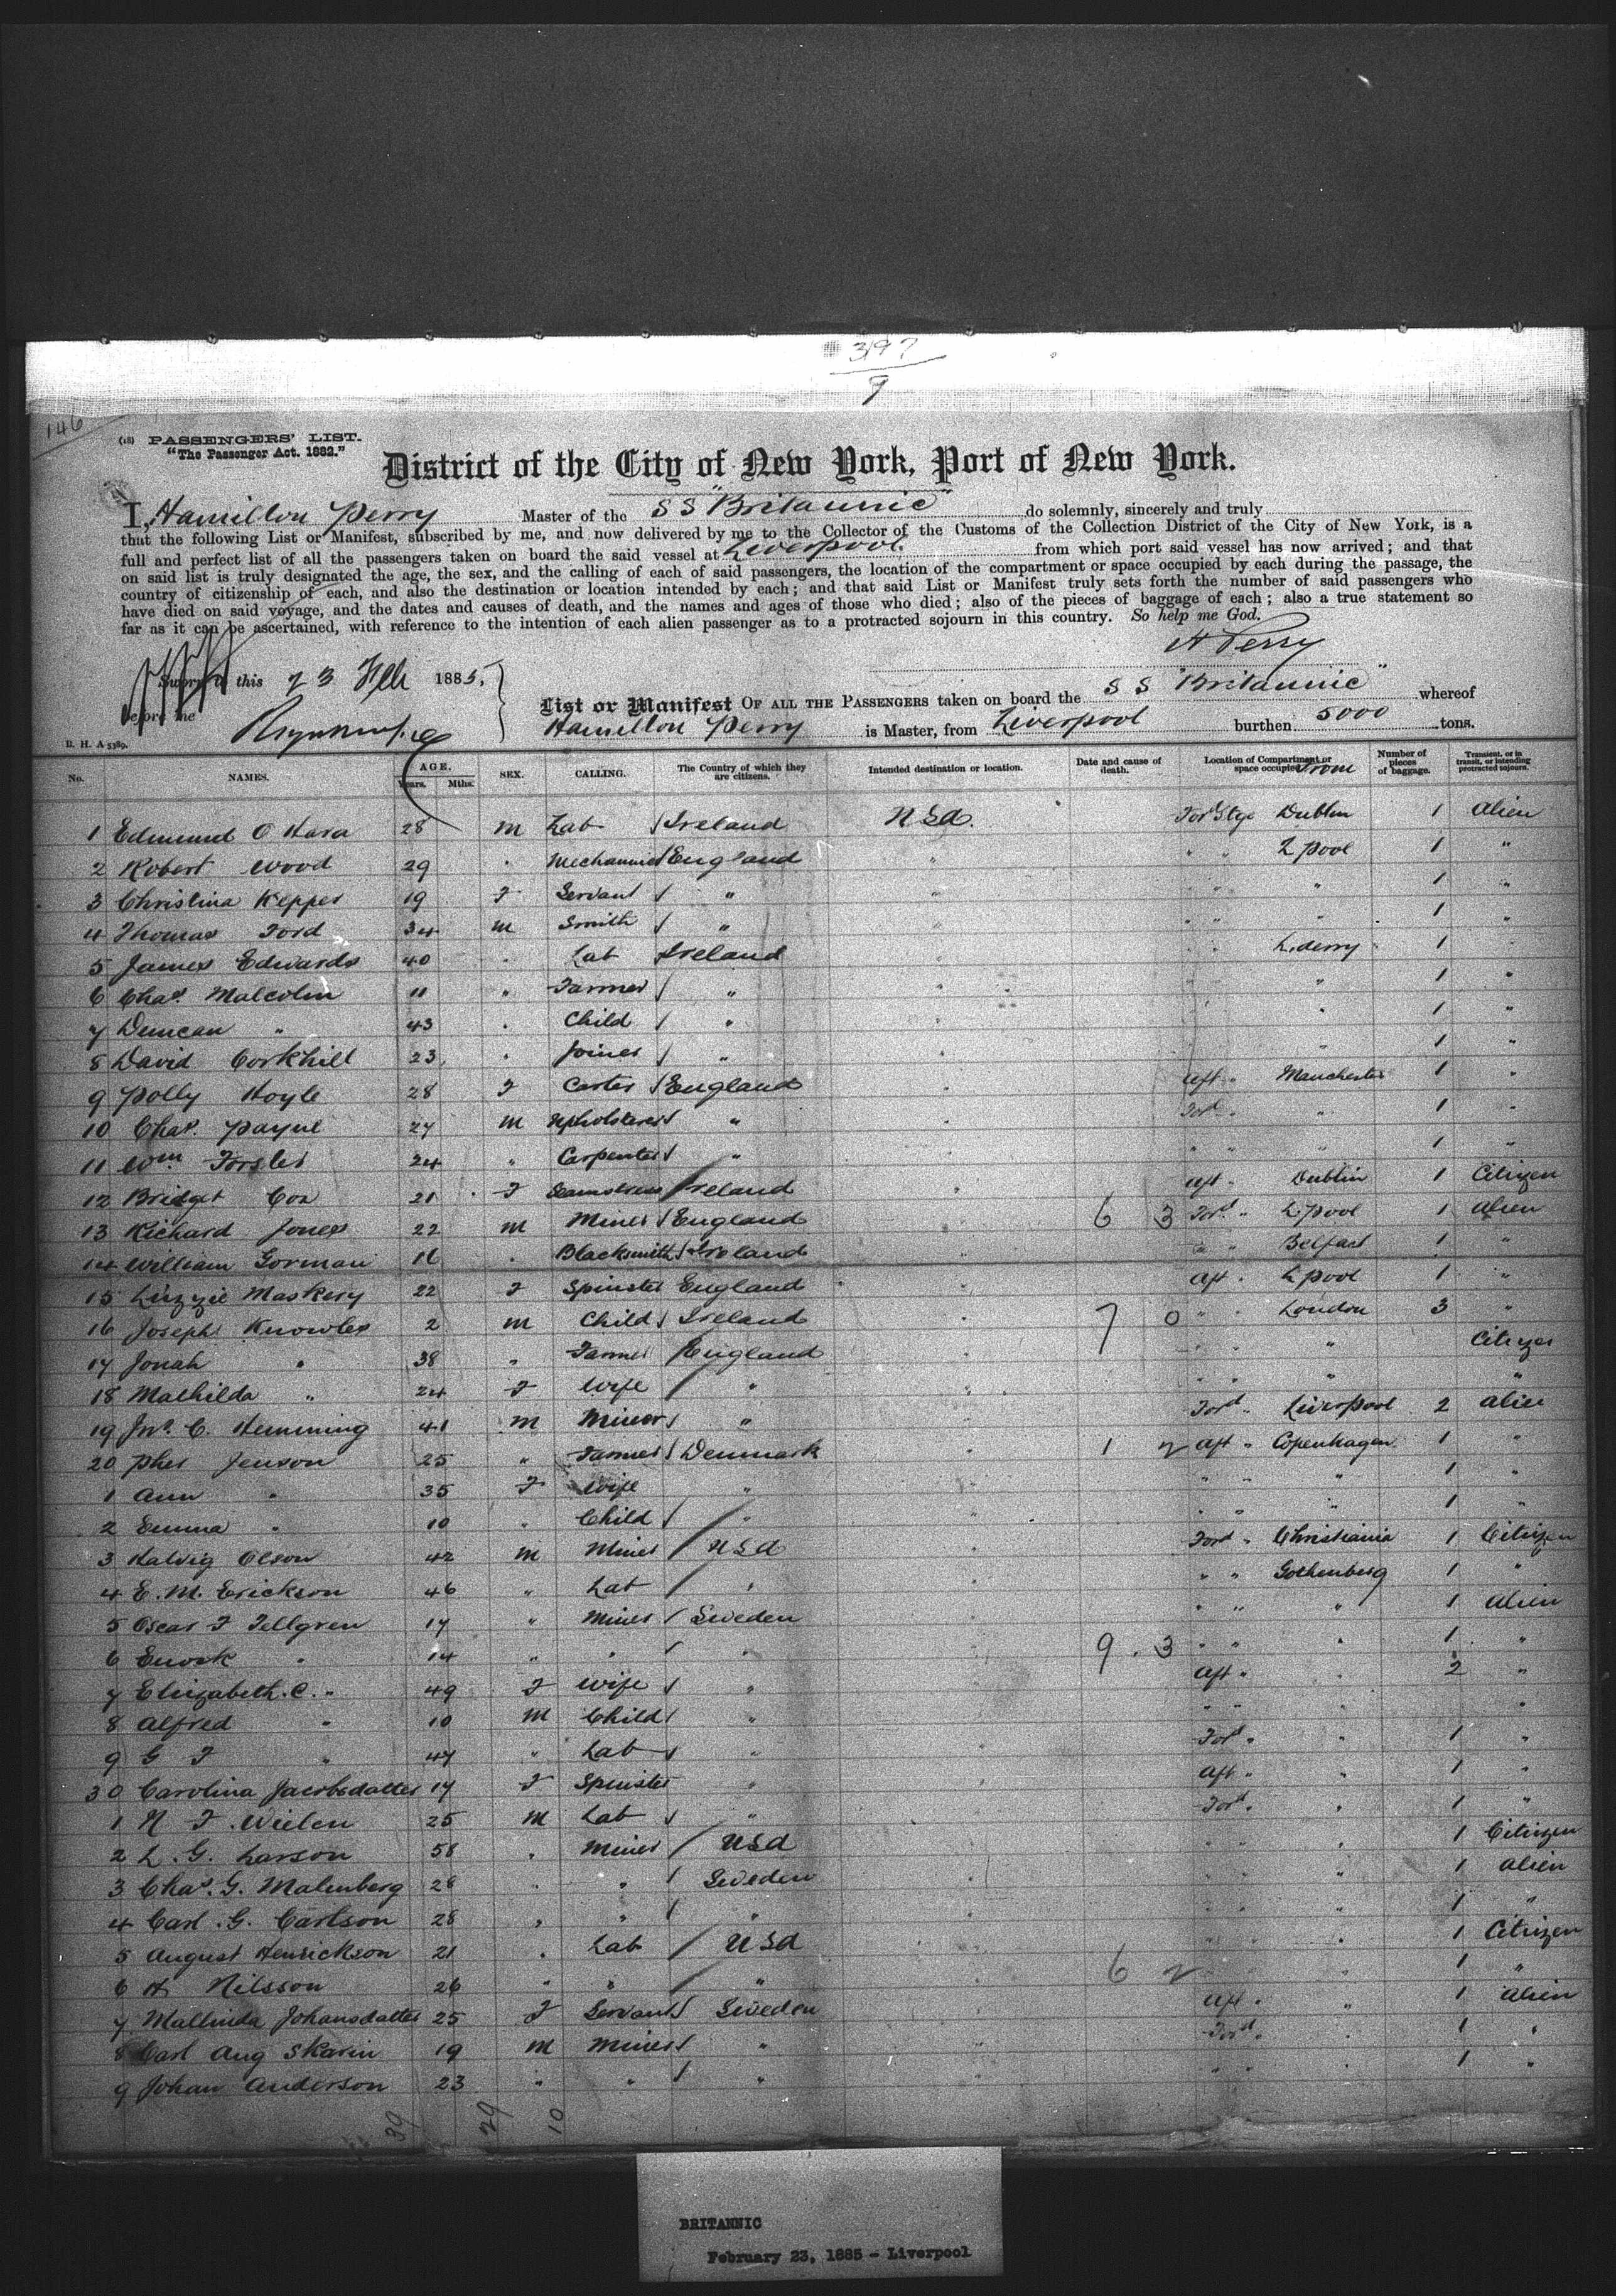 # 397
9
146
(18) PASSENGERS' LIST.
"The Passenger Act. 1882."
District of the City of New York, Port of New York.
I, Hamilton Perry Master of the SS "Britannic" do solemnly, sincerely and truly
that the following List or Manifest, subscribed by me, and now delivered by me to the Collector of the Customs of the Collection District of the City of New York, is a
full and perfect list of all the passengers taken on board the said vessel at Liverpool. from which port said vessel has now arrived; and that
on said list is truly designated the age, the sex, and the calling of each of said passengers, the location of the compartment or space occupied by each during the passage, the
country of citizenship of each, and also the destination or location intended by each; and that said List or Manifest truly sets forth the number of said passengers who
have died on said voyage, and the dates and causes of death, and the names and ages of those who died; also of the pieces of baggage of each; also a true statement so
far as it can be ascertained, with reference to the intention of each alien passenger as to a protracted sojourn in this country. So help me God.
H Perry
Sworn to this 23 Feb 1885.
before me
List or Manifest OF ALL THE PASSENGERS taken on board the SS "Britannic" whereof
Hamilton Perry is Master, from Liverpool burthen 5000 tons.
B. H. A 5389.
No. NAMES. AGE. Years. Mths. SEX. CALLING. The Country of which they are citizens. Intended destination or location. Date and cause of death. Location of Compartment or space occupied From Number of pieces of baggage. Transient, or in transit, or intending protracted sojourn.
1 Edmund O Hara 28 m Lab Ireland USA. For'd Stge Dublin 1 Alien
2 Robert Wood 29 " Mechannic England " " " L pool 1 "
3 Christina Kepper 19 F Servant " " " " " 1 "
4 Thomas Ford 34 m Smith " " " " " 1 "
5 James Edwards 40 " Lab Ireland " " " L.derry 1 "
6 Chas. Malcolm 11 " Farmer " " " 1 "
7 Duncan " 43 " Child " " " 1 "
8 David Corkhill 23 " Joiner " " " 1 "
9 Polly Hoyle 28 F Carter England " aft " Manchester 1 "
10 Chas. Payne 27 m Upholsterer " " Ford " " 1 "
11 Wm Forster 24 " Carpenter " " " " " 1 "
12 Bridget Cox 21 F Seamstress Ireland " aft " Dublin 1 Citizen
13 Richard Jones 22 m Miner England " 6 3 Ford " L.pool 1 alien
14 William Gorman 16 " Blacksmith Ireland " " " Belfast 1 "
15 Lizzie Maskery 22 F Spinster England " aft " L pool 1 "
16 Joseph Knowles 2 m Child Ireland " 7 0 " " London 3 "
17 Jonah " 38 " Farmer England " " " " Citizen
18 Mathilda " 24 F Wife " " " " " "
19 Jno. C. Hemming 41 m Miner " " Ford " Liverpool 2 alien
20 Pher Jenson 25 " Farmer Denmark " 1 2 aft " Copenhagen 1 "
1 Ann " 35 F Wife " " " " " 1 "
2 Emma " 10 " Child " " " " " 1 "
3 Halvig Olson 42 m Miner USA " Ford " Christiania 1 Citizen
4 E. M. Erickson 46 " Lab " " " " Gothenberg 1 "
5 Oscar F Tellgren 17 " Miner Sweden " " " " 1 Alien
6 Enock " 14 " " " " 9 . 3 " " " 1 "
7 Elizabeth. C. " 49 F Wife " " aft " " 2 "
8 Alfred " 10 m Child " " " " "
9 G F " 47 " Lab " " Ford " " 1 "
30 Carolina Jacobsdatter 17 F Spinster " " aft " " 1 "
1 N F. Wielen 25 m Lab " " Ford " " 1 "
2 L. G. Larson 58 " Miner USA " " " " 1 Citizen
3 Chas. G. Malenberg 28 " " Sweden " " " " 1 alien
4 Carl. G. Carlson 28 " " " " " " " 1 "
5 August Henrickson 21 " Lab USA " " " " 1 Citizen
6 H Nilsson 26 " " " " 6 2 " 1 "
7 Mallinda Johansdatter 25 F Servant Sweden " aft " " 1 alien
8 Carl Aug Skarin 19 m Miner " " Ford " " 1 "
9 Johan Anderson 23 " " " " " " " 1 "
39 29 10
BRITANNIC
February 23, 1885 - Liverpool